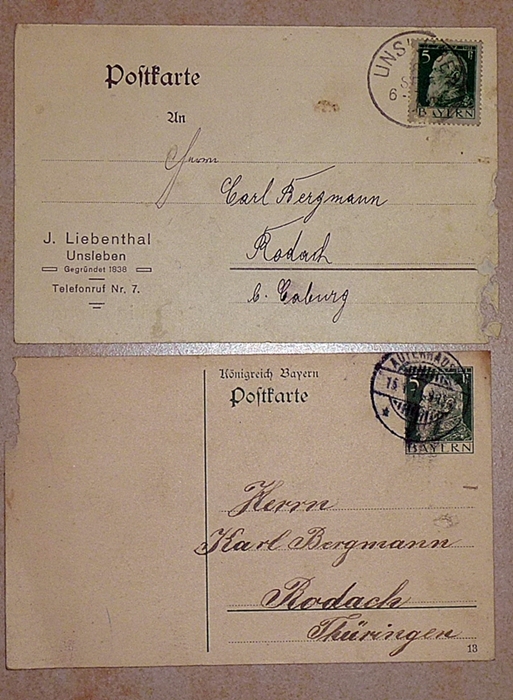 Postkarte
An
Herrn
Carl Bergmann
Rodach
b. Coburg
J. Liebenthal
Unsleben
Gegründet 1838
Telefonruf Nr. 7.
5 Pf
BAYERN
Königreich Bayern
Postkarte
5 Pf
BAYERN
Herrn
Karl Bergmann
Rodach
Thüringen
13